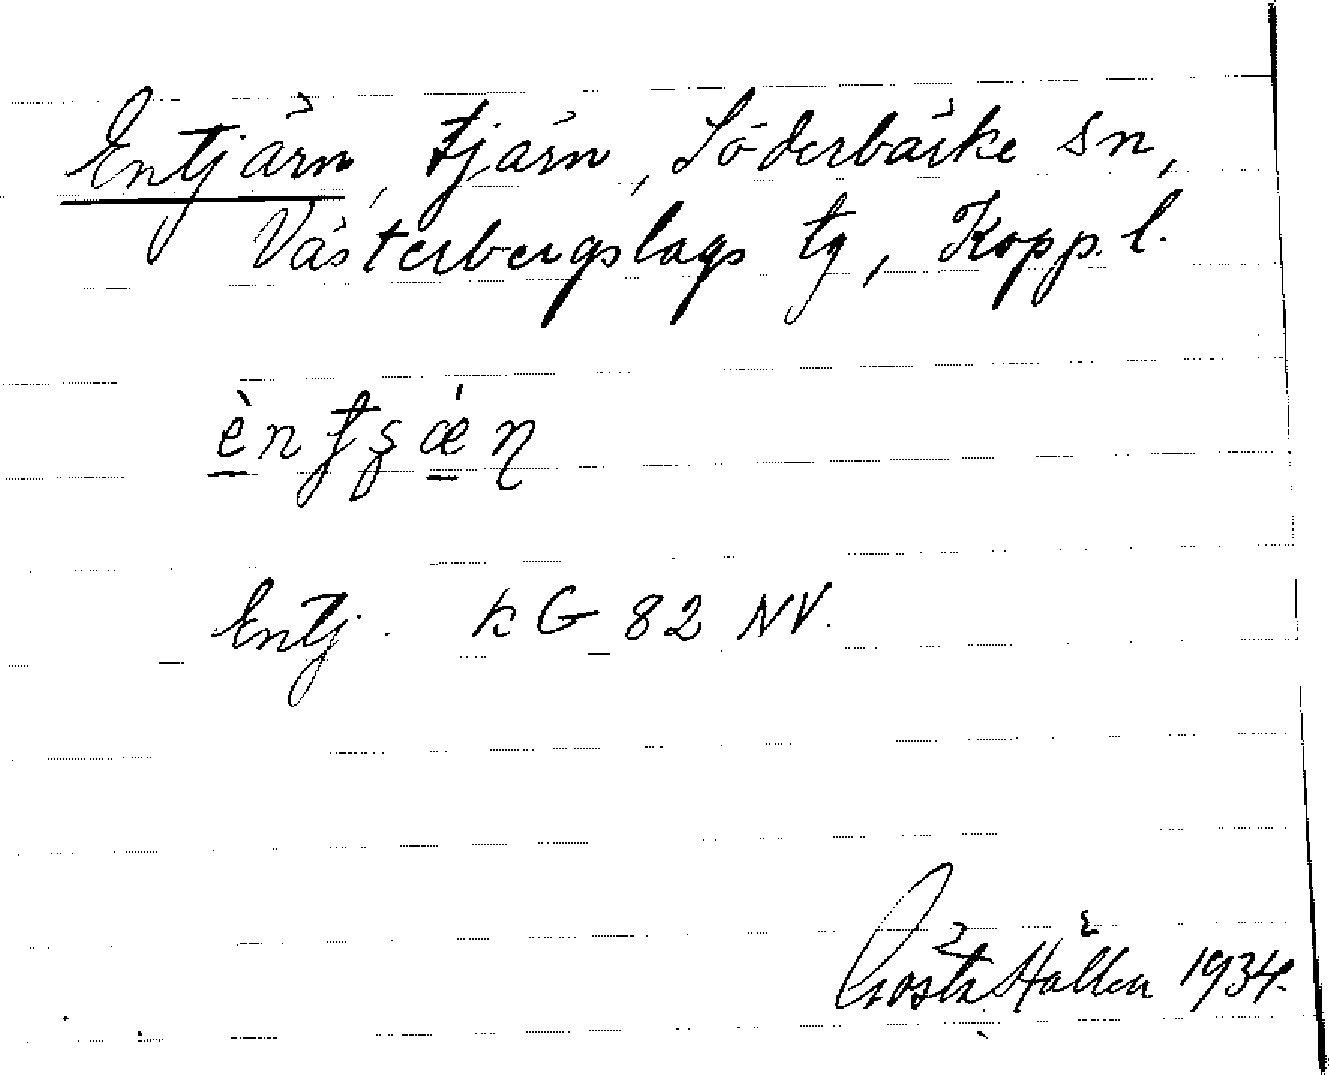 Entjärn, tjärn, Söderbärke sn,
Västerbergslags tg, Kopp. l.
èntʂǽɳ
Entj. kG 82 NV.
Gösta Hallen 1934.